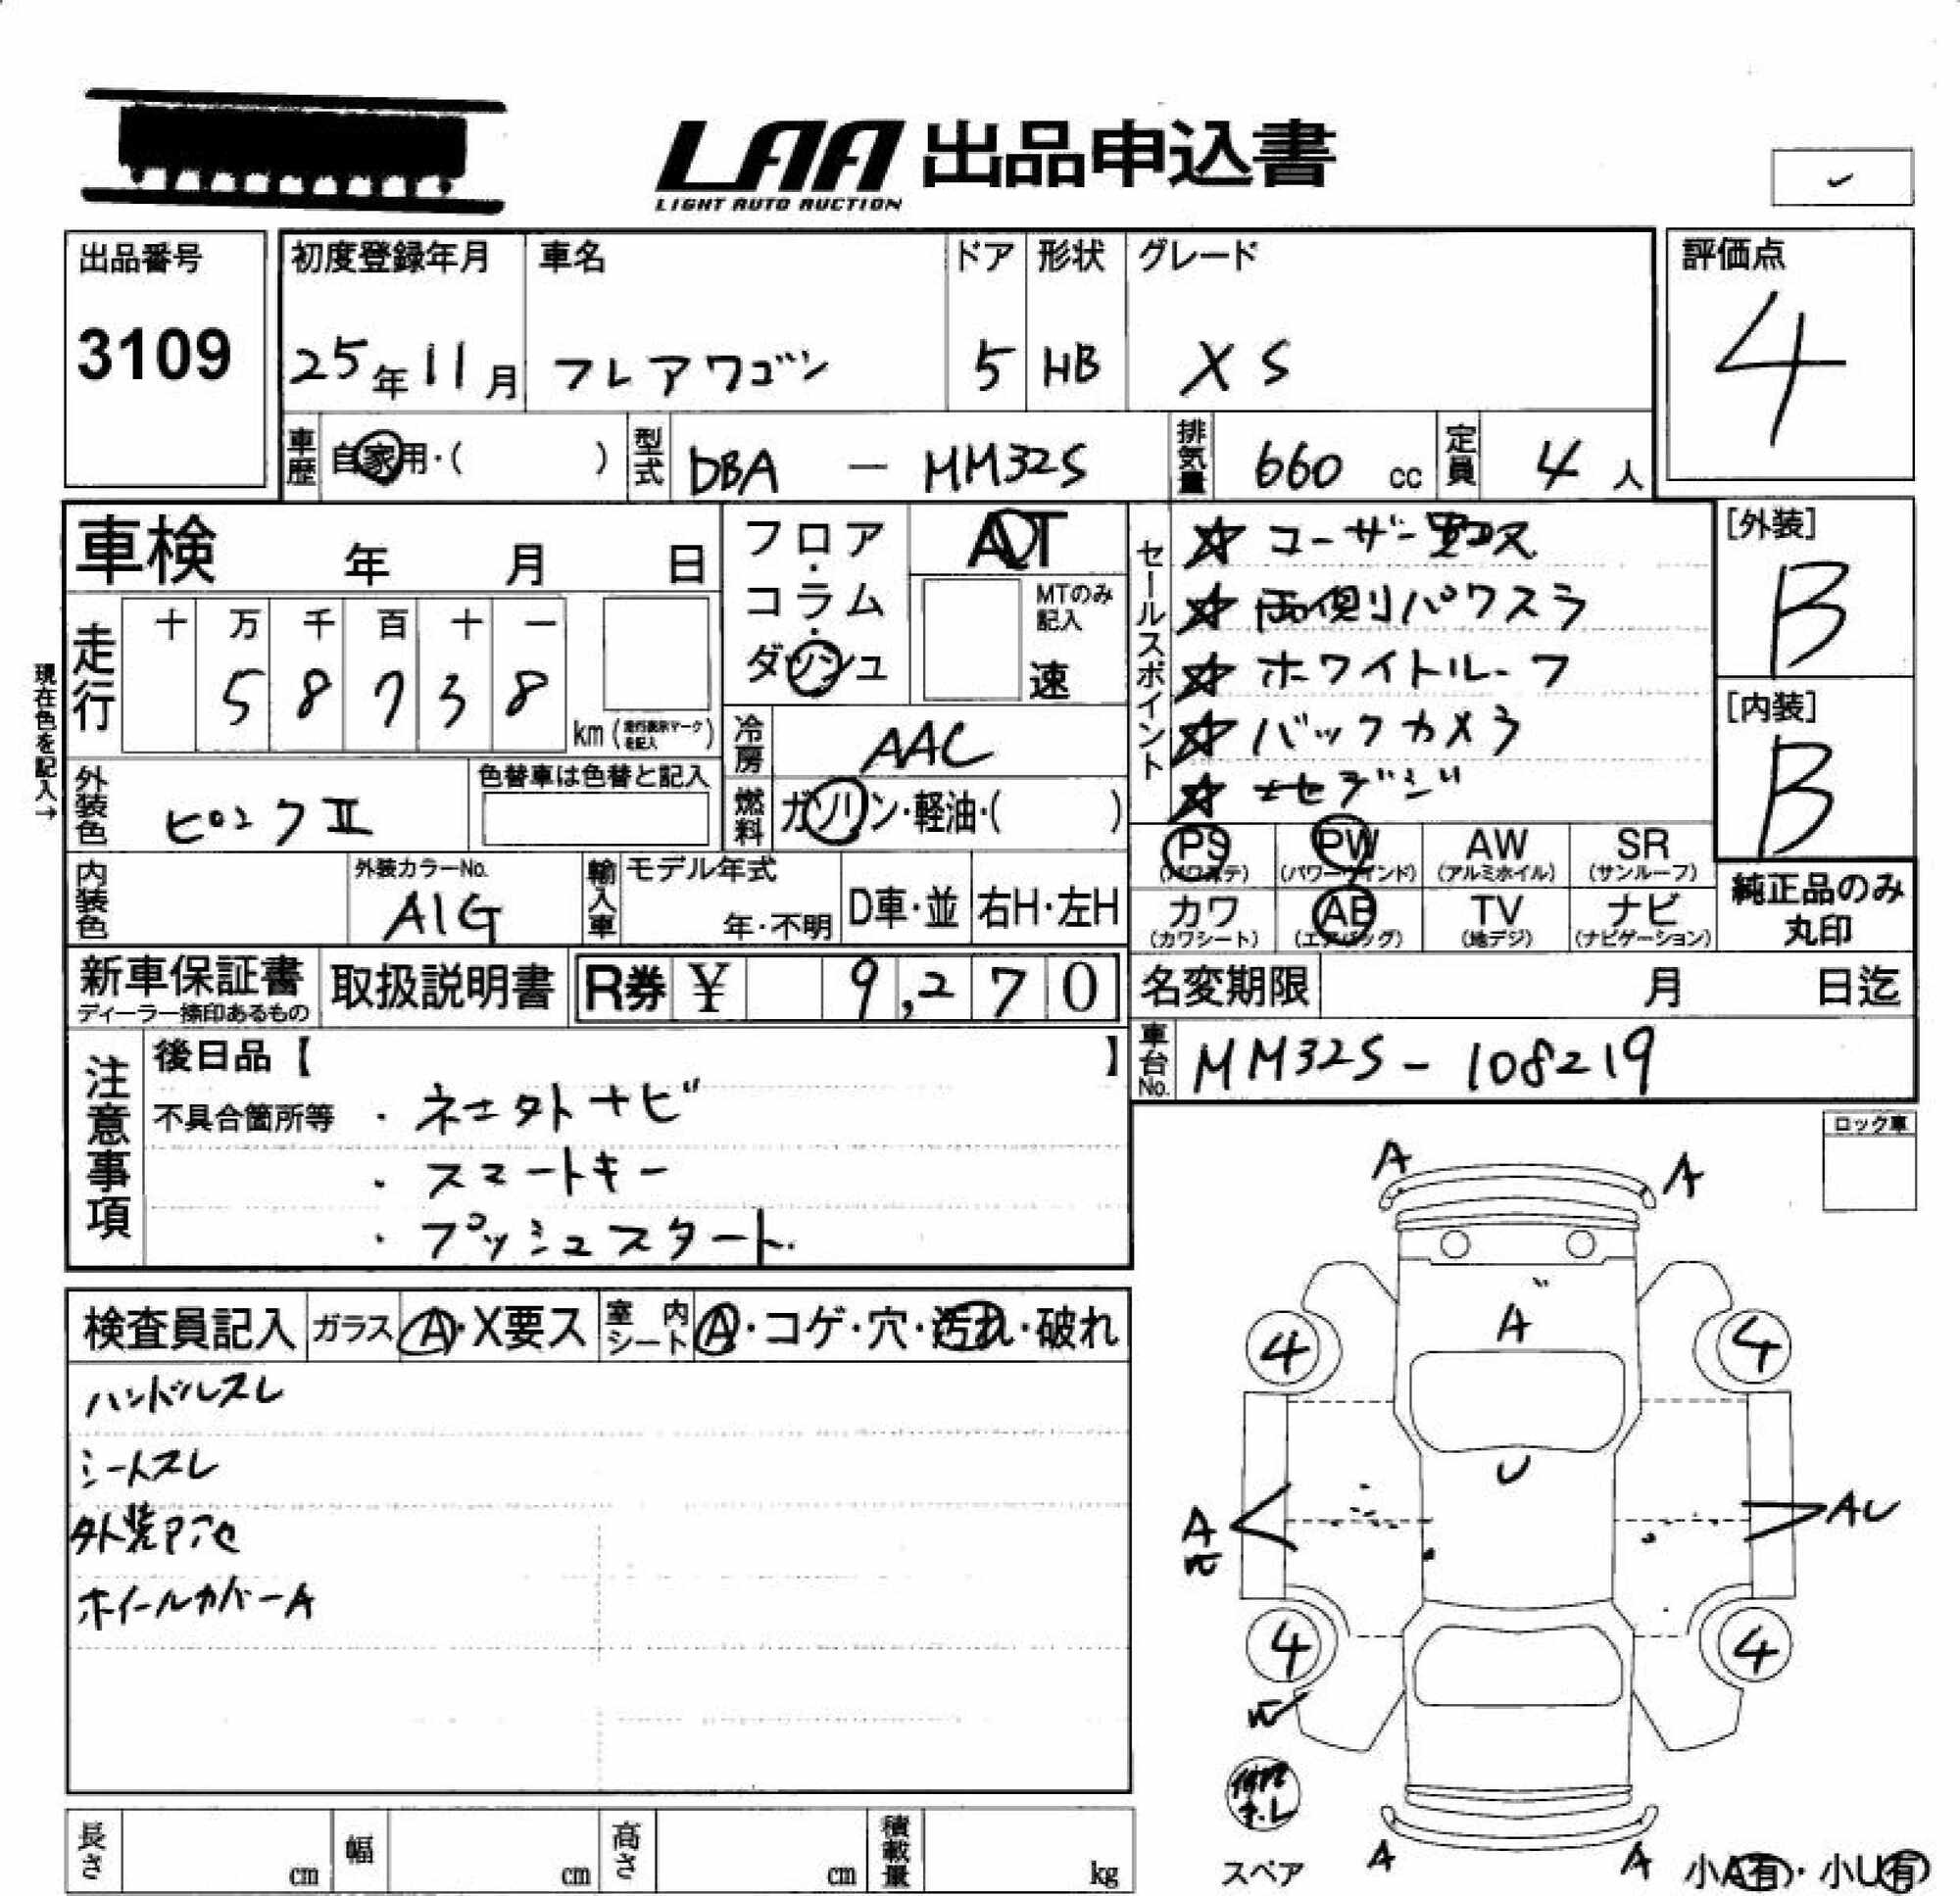 LAA 出品申込書
LIGHT AUTO AUCTION
出品番号
3109
初度登録年月
25年11月
車名
フレアワゴン
ドア
5
形状
HB
グレード
XS
評価点
4
車歴 自家用・( )
型式 DBA － MM32S
排気量 660 cc
定員 4 人
車検 年 月 日
フロア・コラム・ダッシュ
AT
MTのみ記入
速
走行
十 万 千 百 十 一
5 8 7 3 8
km (走行表示マークを記入)
現在色を記入→
外装色 ピンクⅡ
色替車は色替と記入
冷房 AAC
燃料 ガソリン・軽油・( )
内装色
外装カラーNo.
A1G
輸入車
モデル年式
年・不明
D車・並
右H・左H
セールスポイント
☆ ユーザー買取ス
☆ 両側パワスラ
☆ ホワイトルーフ
☆ バックカメラ
☆
[外装]
B
[内装]
B
PS (パワステ)
PW (パワーウインド)
AW (アルミホイル)
SR (サンルーフ)
カワ (カワシート)
AB (エアバッグ)
TV (地デジ)
ナビ (ナビゲーション)
純正品のみ
丸印
新車保証書
ディーラー捺印あるもの
取扱説明書
R券 ¥ 9,270
名変期限 月 日迄
車台No. MM32S - 108219
注意事項
後日品【 】
不具合箇所等
・ナビ
・スマートキー
・プッシュスタート.
ロック車
検査員記入
ガラス A・X要ス
室内シート A・コゲ・穴・汚れ・破れ
ハンドルスレ
シートスレ
外装
ホイールカバーA
A A
A
4 4
U
A AU
4 4
スペア
A A
小A有・小U有
長さ cm
幅 cm
高さ cm
積載量 kg